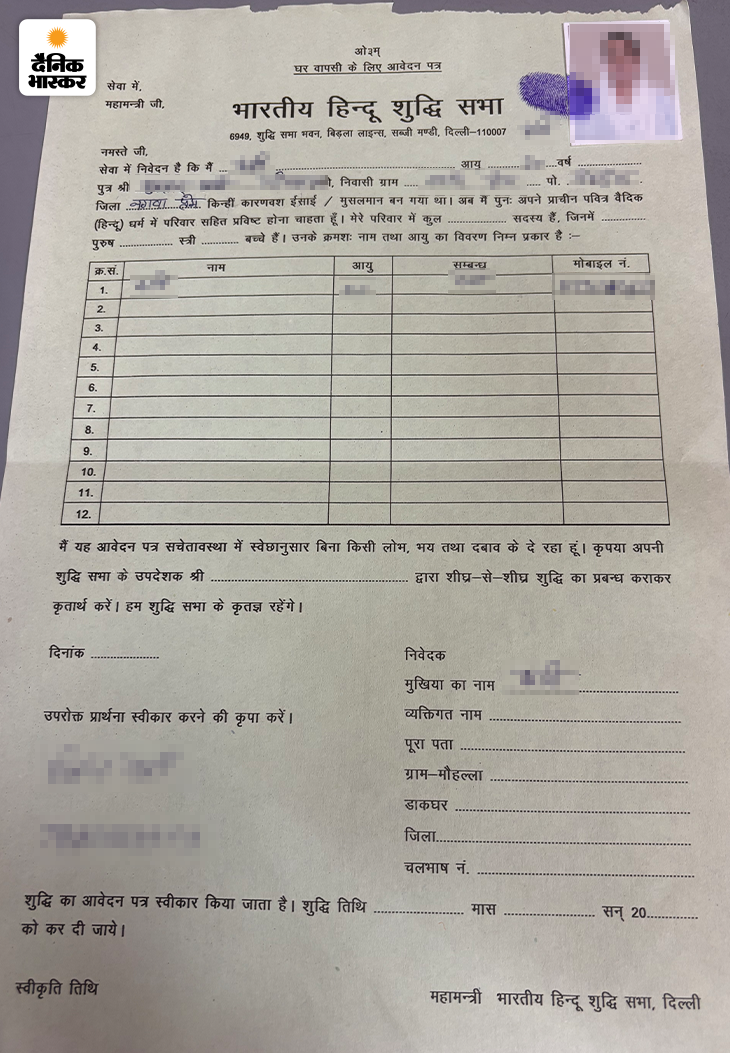 दैनिक
भास्कर
ओ३म्
घर वापसी के लिए आवेदन पत्र
सेवा में,
महामन्त्री जी,
भारतीय हिन्दू शुद्धि सभा
6949, शुद्धि सभा भवन, बिड़ला लाइन्स, सब्जी मण्डी, दिल्ली–110007
नमस्ते जी,
सेवा में निवेदन है कि मैं ............ आयु ............ वर्ष ............
पुत्र श्री ............ निवासी ग्राम ............ पो. ............
जिला ............ किन्हीं कारणवश ईसाई / मुसलमान बन गया था। अब मैं पुनः अपने प्राचीन पवित्र वैदिक
(हिन्दू) धर्म में परिवार सहित प्रविष्ट होना चाहता हूँ। मेरे परिवार में कुल ............ सदस्य हैं, जिनमें ............
पुरुष ............ स्त्री ............ बच्चे हैं। उनके क्रमशः नाम तथा आयु का विवरण निम्न प्रकार है :–
क्र.सं. नाम आयु सम्बन्ध मोबाइल नं.
1.
2.
3.
4.
5.
6.
7.
8.
9.
10.
11.
12.
मैं यह आवेदन पत्र सचेतावस्था में स्वेछानुसार बिना किसी लोभ, भय तथा दबाव के दे रहा हूं। कृपया अपनी
शुद्धि सभा के उपदेशक श्री ............ द्वारा शीघ्र–से–शीघ्र शुद्धि का प्रबन्ध कराकर
कृतार्थ करें। हम शुद्धि सभा के कृतज्ञ रहेंगे।
दिनांक ............
निवेदक
मुखिया का नाम ............
उपरोक्त प्रार्थना स्वीकार करने की कृपा करें।
व्यक्तिगत नाम ............
पूरा पता ............
ग्राम–मौहल्ला ............
डाकघर ............
जिला............
चलभाष नं. ............
शुद्धि का आवेदन पत्र स्वीकार किया जाता है। शुद्धि तिथि ............ मास ............ सन् 20............
को कर दी जाये।
स्वीकृति तिथि
महामन्त्री भारतीय हिन्दू शुद्धि सभा, दिल्ली